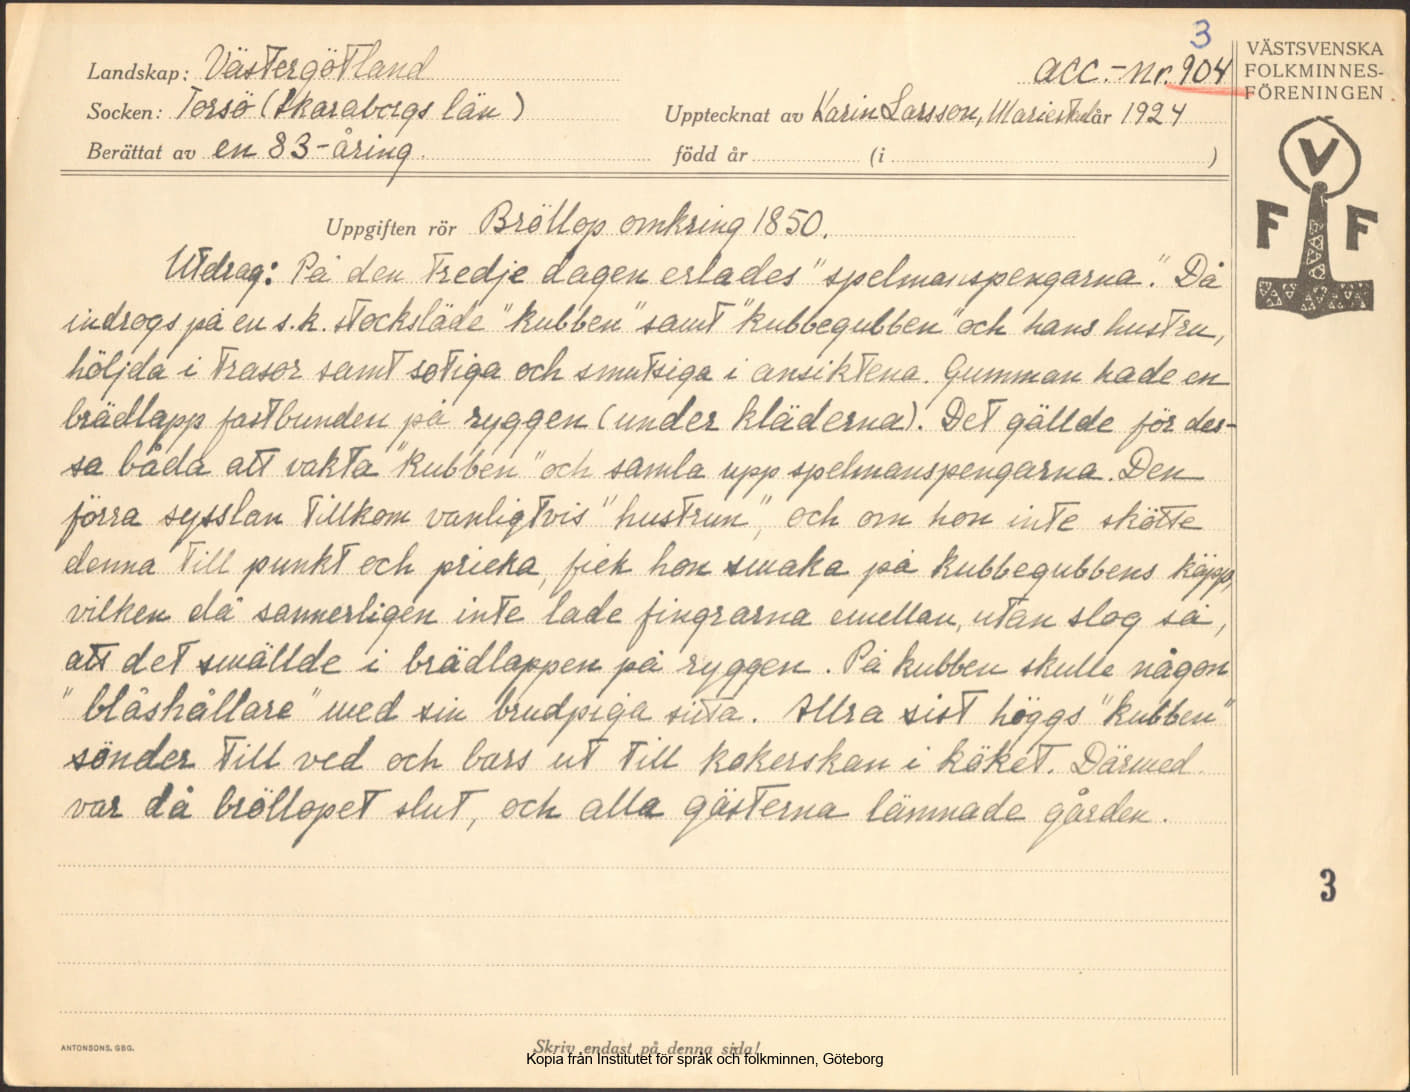 3
Landskap: Västergötland
acc.-nr. 904
VÄSTSVENSKA
FOLKMINNES-
FÖRENINGEN
Socken: Torsö (Skaraborgs län)
Upptecknat av Karin Larsson, Mariestad år 1924
Berättat av en 83-åring.
född år (i )
V
F F
Uppgiften rör Bröllop omkring 1850.
Utdrag: På den tredje dagen erlades "spelmanspengarna". Då
indrogs på en s.k. stocksläde "kubben" samt "kubbegubben" och hans hustru,
höljda i trasor samt sotiga och smutsiga i ansiktena. Gumman hade en
brädlapp fastbunden på ryggen (under kläderna). Det gällde för des-
sa båda att vakta "kubben" och samla upp spelmanspengarna. Den
förra sysslan tillkom vanligtvis "hustrun", och om hon inte skötte
denna till punkt och pricka, fick hon smaka på kubbegubbens käpp,
vilken då sannerligen inte lade fingrarna emellan, utan slog så,
att det smällde i brädlappen på ryggen. På kubben skulle någon
"blåshållare" med sin brudpiga sitta. Allra sist höggs "kubben"
sönder till ved och bars ut till kokerskan i köket. Därmed
var då bröllopet slut, och alla gästerna lämnade gården.
3
ANTONSONS, GBG.
Skriv endast på denna sida!
Kopia från Institutet för språk och folkminnen, Göteborg